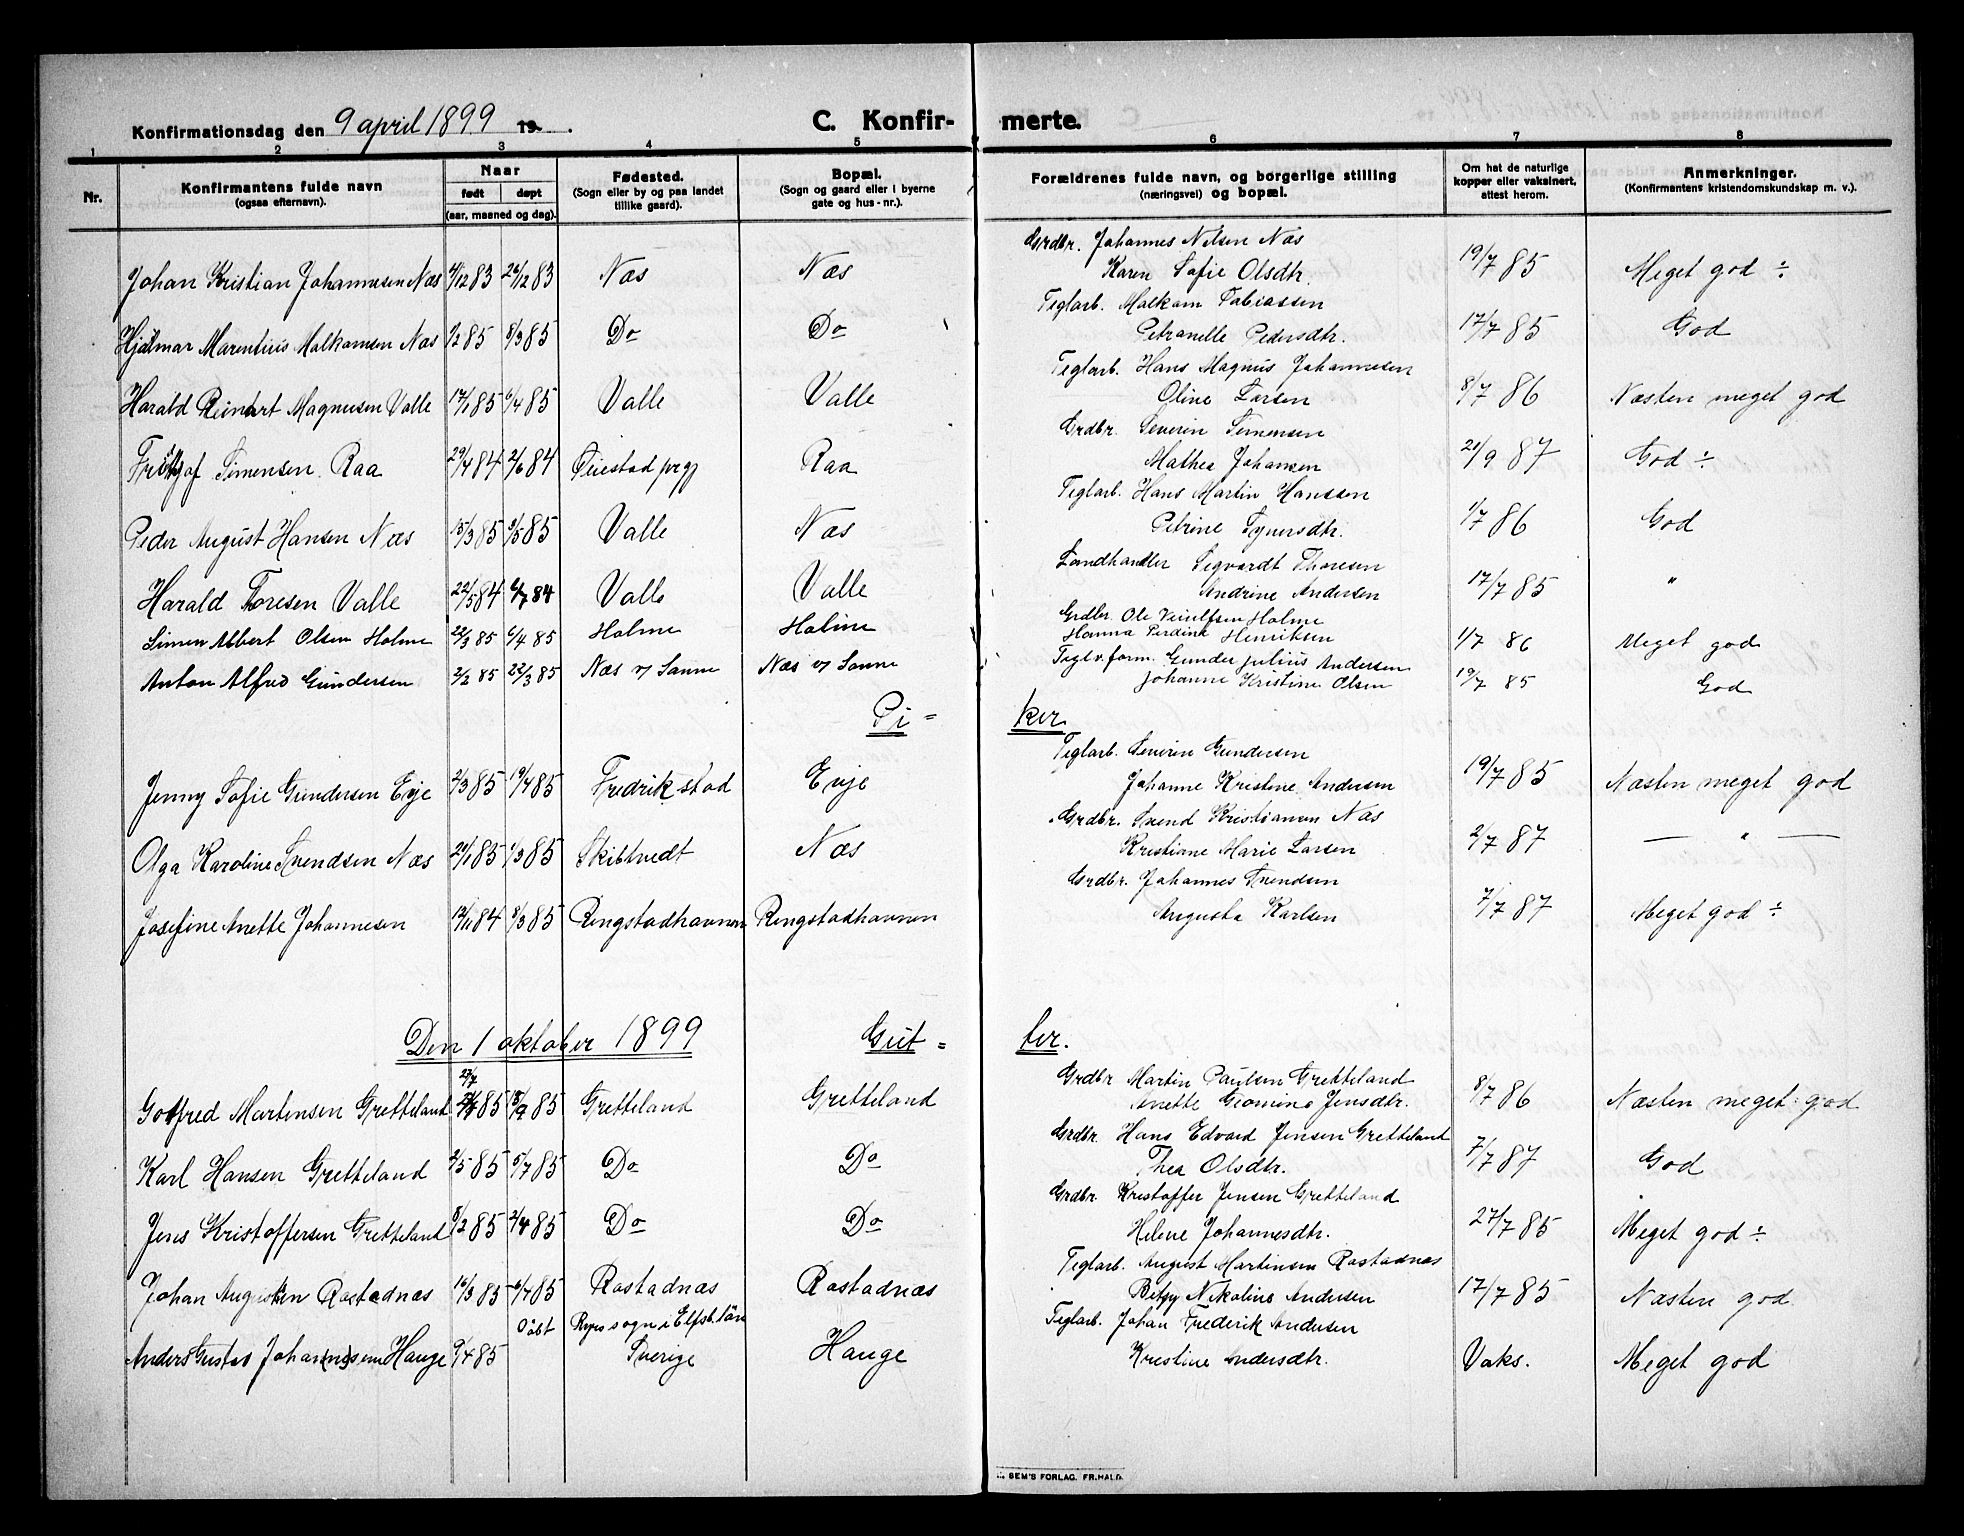 Konfirmationsdag den 9 april 1899 19 .
C. Konfir- merte.
1 2 3 4 5 6 7 8
Nr.
Konfirmantens fulde navn
(ogsaa efternavn).
Naar
født døpt
(aar, maaned og dag).
Fødested.
(Sogn eller by og paa landet
tillike gaard).
Bopæl.
(Sogn og gaard eller i byerne
gate og hus-nr.).
Forældrenes fulde navn, og borgerlige stilling
(næringsvei) og bopæl.
Om hat de naturlige
kopper eller vaksinert,
attest herom.
Anmerkninger.
(Konfirmantens kristendomskundskap m. v.).
Grdbr. Johannes Nilsen Næs
Johan Kristian Johannesen Næs 4/12 83 26/12 83 Næs Næs Karen Sofie Olsdtr. 19/7 85 Meget god ÷
Teglarb. Malkam Tobiassen
Hjalmar Marentius Malkamsen Næs 1/2 85 8/3 85 Do Do Petranelle Pedersdtr. 17/7 85 God
Teglarb. Hans Magnus Johannesen
Harald Reinert Magnusen Valle 17/1 85 6/4 85 Valle Valle Oline Larsen 8/7 86 Næsten meget god
Grdbr. Severin Simensen
Fritjof Simensen Raa 29/4 84 2/6 84 Øiestad prgj Raa Mathea Johansen 21/9 87 God ÷
Teglarb. Hans Martin Hanssen
Peder August Hansen Næs 15/3 85 3/5 85 Valle Næs Petrine Syversdtr. 1/7 86 God
Landhandler Segvardt Thoresen
Harald Toresen Valle 22/5 84 6/7 84 Valle Valle Andrine Andersen 17/7 85 "
Grdbr. Ole Holme
Simen Albert Olsen Holme 22/3 85 6/4 85 Holme Holme Hanna Perdina Henriksen 1/7 86 Meget god
Teglv.form. Gunder Julius Andersen
Anton Alfred Gundersen 2/2 85 22/3 85 Næs v/ Sanne Næs v/ Sanne Johanne Kristine Olsen 19/7 85 God
Pi = ker.
Teglarb. Severin Gundersen
Jenny Sofie Gundersen Evje 2/3 85 19/4 85 Fredrikstad Evje Johanne Kristine Andersen 19/7 85 Næsten meget god
Grdbr. Svend Kristiansen Næs
Olga Karoline Svendsen Næs 21/1 85 1/3 85 Skibtvedt Næs Kristiane Marie Larsen 2/7 87 — " —
Grdbr. Johannes Svendsen
Josefine Anette Johannesen 12/11 84 8/3 85 Ringstadhavnen Ringstadhavnen Augusta Karlsen 7/7 87 Meget god ÷
Den 1 oktober 1899 Gut = ter.
27/7 Grdbr Martin Paulsen Gretteland
Gotfred Martensen Gretteland 85 13/9 85 Gretteland Gretteland Anette Gromine Jensdtr. 8/7 86 Næsten meget god
Grdbr. Hans Edvard Jensen Gretteland
Karl Hansen Gretteland 2/5 85 5/7 85 Do Do Thea Olsdtr. 7/7 87 God
Grdbr Kristoffer Jensen Gretteland
Jens Kristoffersen Gretteland 8/2 85 2/4 85 Do Do Helene Johannesdtr. 27/7 85 Meget god ÷
Teglarb. August Martinsen Rostadnæs
Johan Augustsen Rostadnæs 16/3 85 6/4 85 Rostadnæs Rostadnæs Betzy Nikoline Andersen 17/7 85 Næsten god
Døbt sogn i Elfsb.län Teglarb. Johan Frederik Andersen
Anders Gustav Johan(ne)sen Hauge 9/4 85 Sverige Hauge Kristine Andersdtr. Vaks. Meget god
SEM'S FORLAG. FR.HALD.